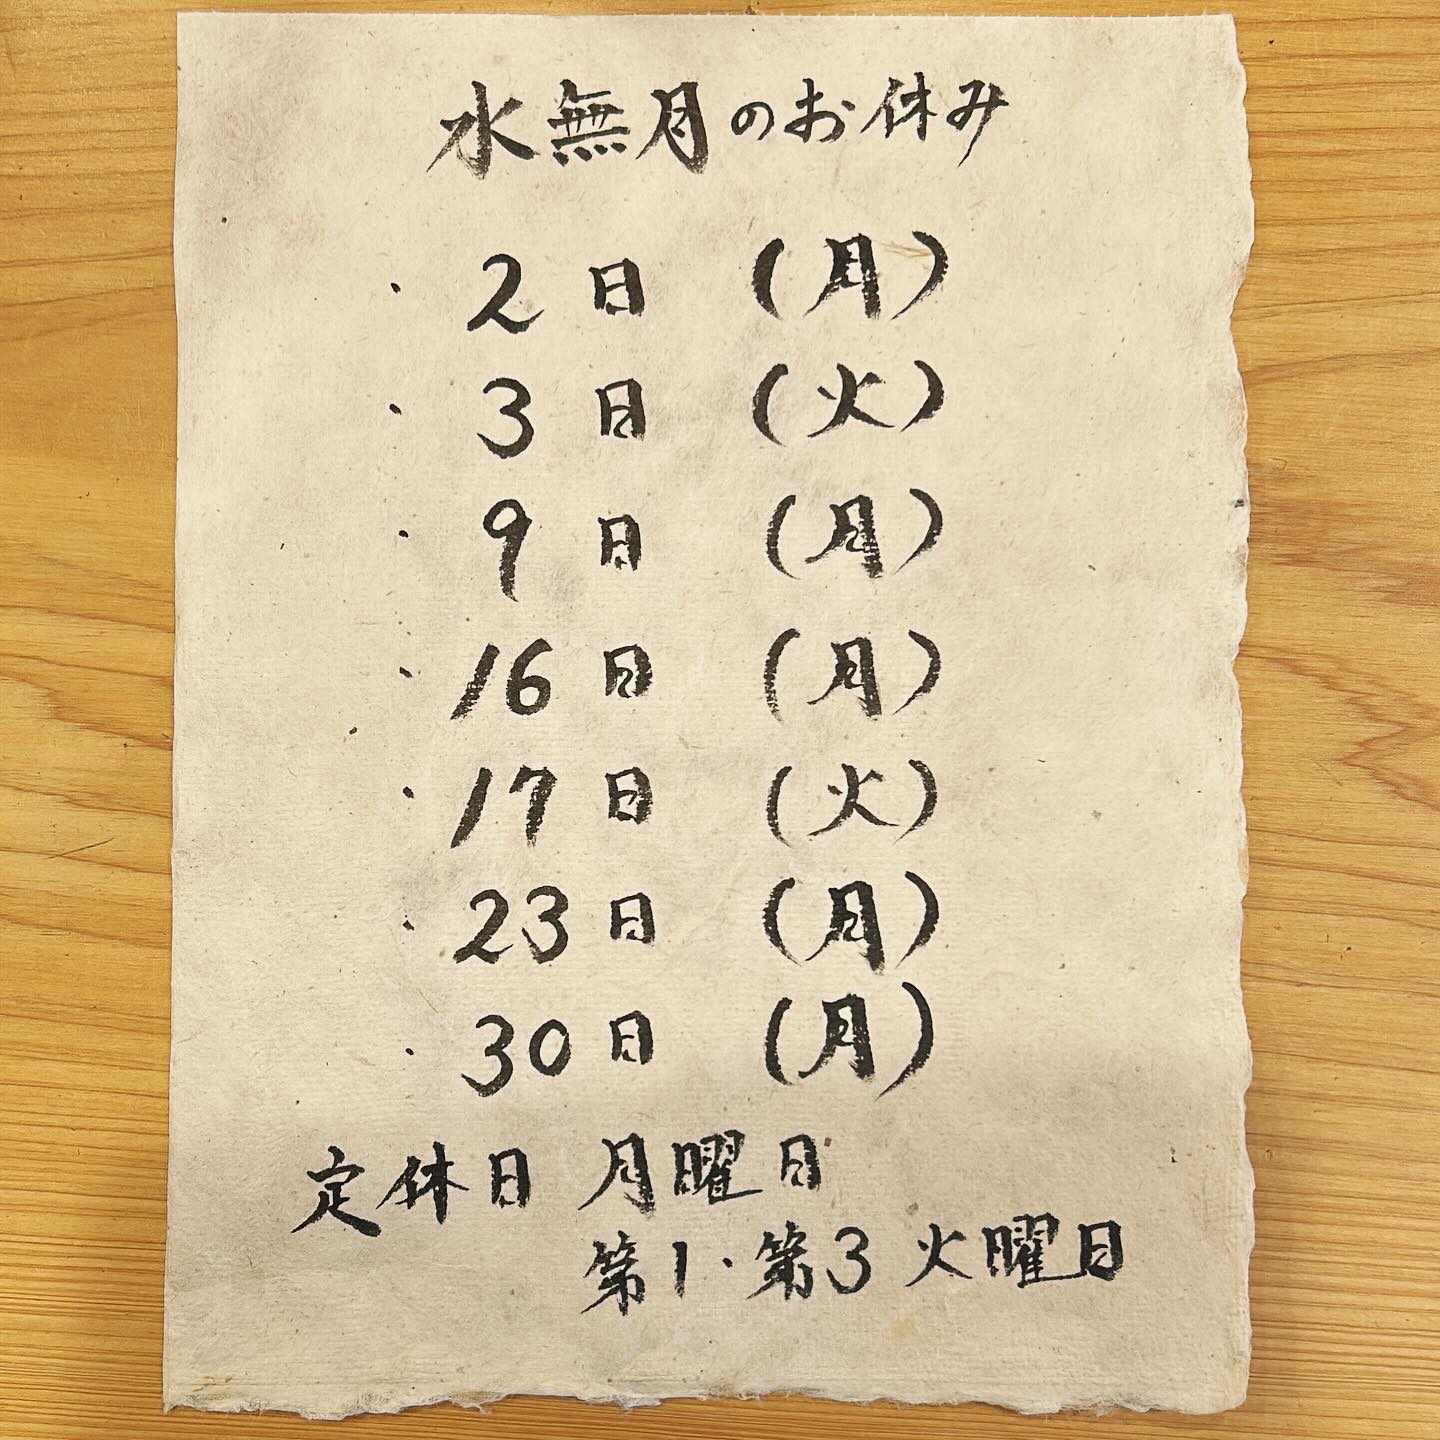 水無月のお休み
・ 2日 (月)
・ 3日 (火)
・ 9日 (月)
・ 16日 (月)
・ 17日 (火)
・ 23日 (月)
・ 30日 (月)
定休日 月曜日
第1・第3 火曜日